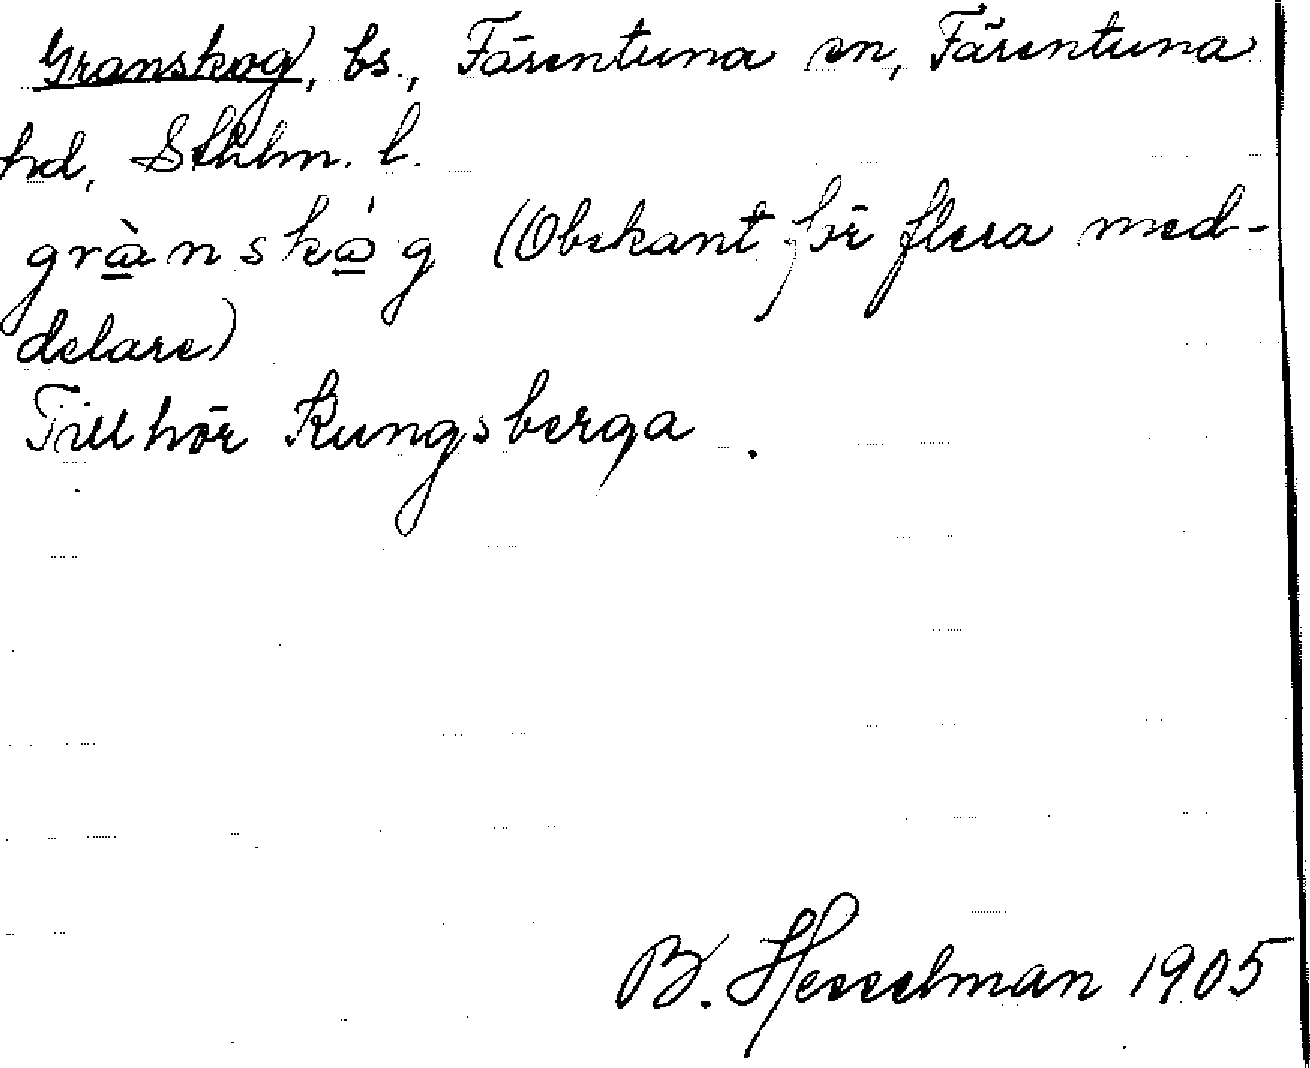 Granskog, bs., Färentuna sn, Färentuna
hd, Sthlm. l.
grànskóg (Obekant för flera med-
delare)
Tillhör Kungsberga.
B. Hesselman 1905